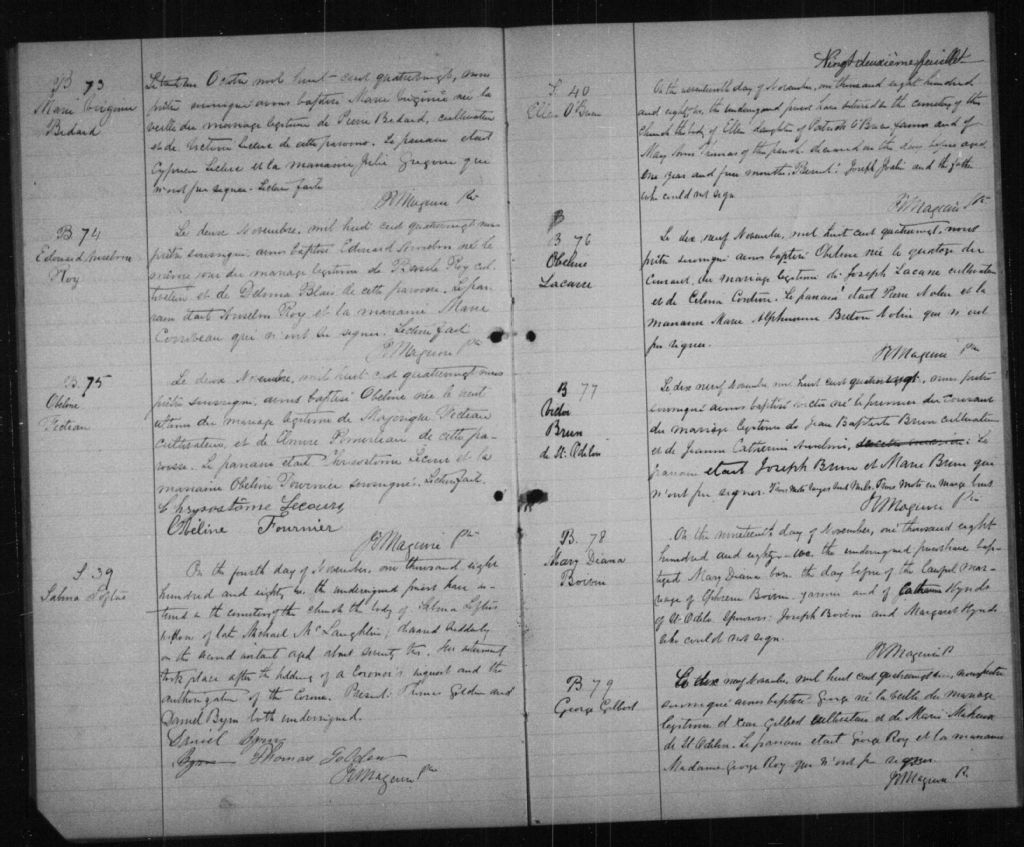 B 73
Marie Virginie
Bédard
Octobre mil huit cent quatrevingt, nous
prêtre soussigné avons baptisé Marie Virginie née la
veille du mariage légitime de Pierre Bedard, cultivateur
et de Victoria Leclerc de cette paroisse. Le parrain était
Cyprien Leclerc et la marraine Julie Gregoire qui
n'ont pu signer. Lecture faite
JR Maguire Ptr
B 74
Edouard Anselme
Roy
Le deux Novembre, mil huit cent quatrevingt nous
prêtre soussigné avons baptisé Edouard Anselm né le
même jour du mariage légitime de Basile Roy cul-
tivateur et de Blais de cette paroisse. Le par-
rain était Anselm Roy et la marraine Marie
Corriveau qui n'ont su signer. Lecture fait
JR Maguire Ptr
B. 75
Obeline
Le deux Novembre, mil huit cent quatrevingt nous
prêtre soussigné, avons baptisé Obéline née le huit
du mariage légitime de
cultivateur, et de de cette pa-
roisse. Le parrain était Chrysostome Lecours et la
marraine Obeline Fournier soussigné. Lecture fait.
Chrysostôme Lecours
Obéline Fournier
JR Maguire Ptr
S. 39
Salma Loftus
On the fourth day of November, one thousand eight
hundred and eighty, the undersigned priest have in-
tered in the cemetery of the church the body of Selma Loftus
widow of late Michael McLaughlin, deceased suddenly
on the second instant aged about seventy Her interment
took place after the holding of a Coroner's inquest and the
of the Corona. Present: Thomas Golden and
Daniel Byrn both undersigned.
Daniel Byrns
Byrn Thomas Golden
JR Maguire Ptr
Vingt deuxième feuillet
S. 40
Ellen O'Brien
On the seventeenth day of November, one thousand eight hundred
and eighty, the undersigned priest have intered in the cemetery of this
church the body of Ellen daughter of Patrick O'Brien farmer and of
Mary Ann of this parish deceased on the day before aged
one year and months. Present: Joseph and the father
who could not sign
JR Maguire Ptr
B
B 76
Obeline
Lacasse
Le dix neuf Novembre, mil huit cent quatrevingt, nous
prêtre soussigné avons baptisé Obeline née le quatorze du
Courant, du mariage légitime de Joseph Lacasse cultivateur
et de Celena Couture. Le parrain était Pierre Nolin et la
marraine Marie Alphonsine Breton Nolin qui n'ont
pu signer.
JR Maguire Ptr
B 77
Victor
Brun
de St. Odilon
Le dix neuf Novembre mil huit cent quatrevingt, nous prêtre
soussigné avons baptisé Victor né le premier du Courant
du mariage légitime de Jean Baptiste Brun cultivateur
et de Jeanne Catherine Le
parrain était Joseph Brun et Marie Brun qui
n'ont pu signer. Trois mots rayés sont nuls. Trois mots en marge bons
JR Maguire Ptr
B. 78
Mary Diana
Boivin
On the nineteenth day of November, one thousand eight
hundred and eighty we the undersigned priest have bap-
tized Mary Diana born the day before of the lawful mar-
riage of Boivin farmer and of Catherine Hynds
of St. Odilon. Sponsors: Joseph Boivin and Margaret Hynds
who could not sign.
JR Maguire P
B 79
George Gilbert
Le dix neuf Novembre, mil huit cent quatrevingt, nous prêtre
soussigné avons baptisé George né la veille du mariage
légitime de Gilbert cultivateur et de Marie
de St Odilon. Le parrain était George Roy et la marraine
Madame George Roy qui n'ont pu signer
JR Maguire P.